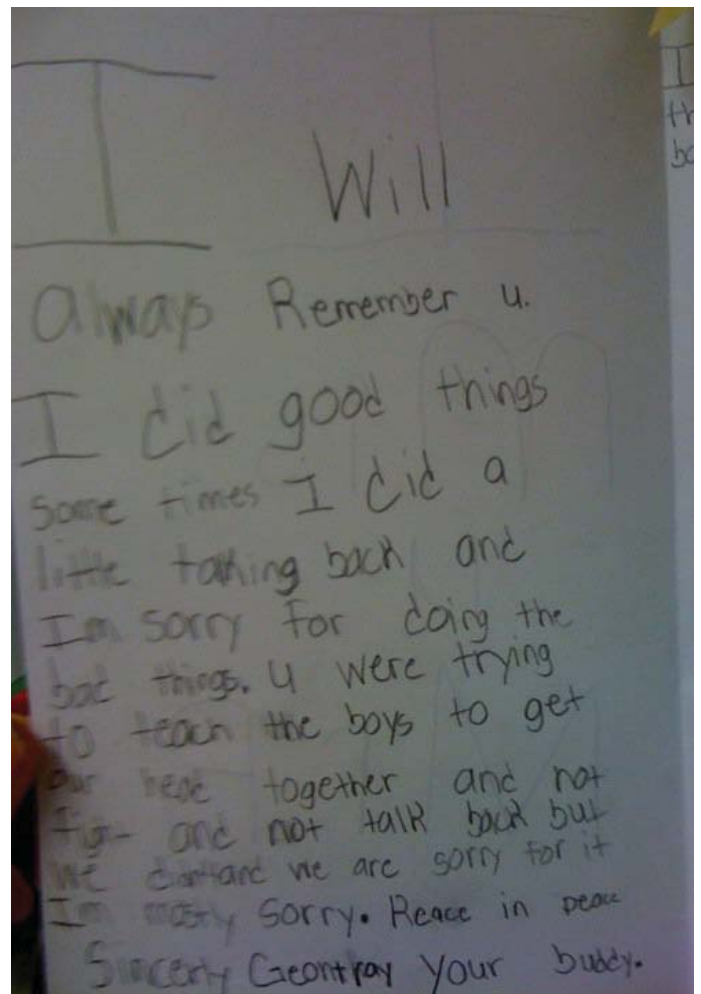 I Will
always Remember u.
I did good things
some times I did a
little talking back and
Im sorry for doing the
bad things. u were trying
to teach the boys to get
our head together and not
and not talk back but
we and we are sorry for it
Im mostly sorry. Reace in peace
Sincerly Geontray your buddy.
I
th